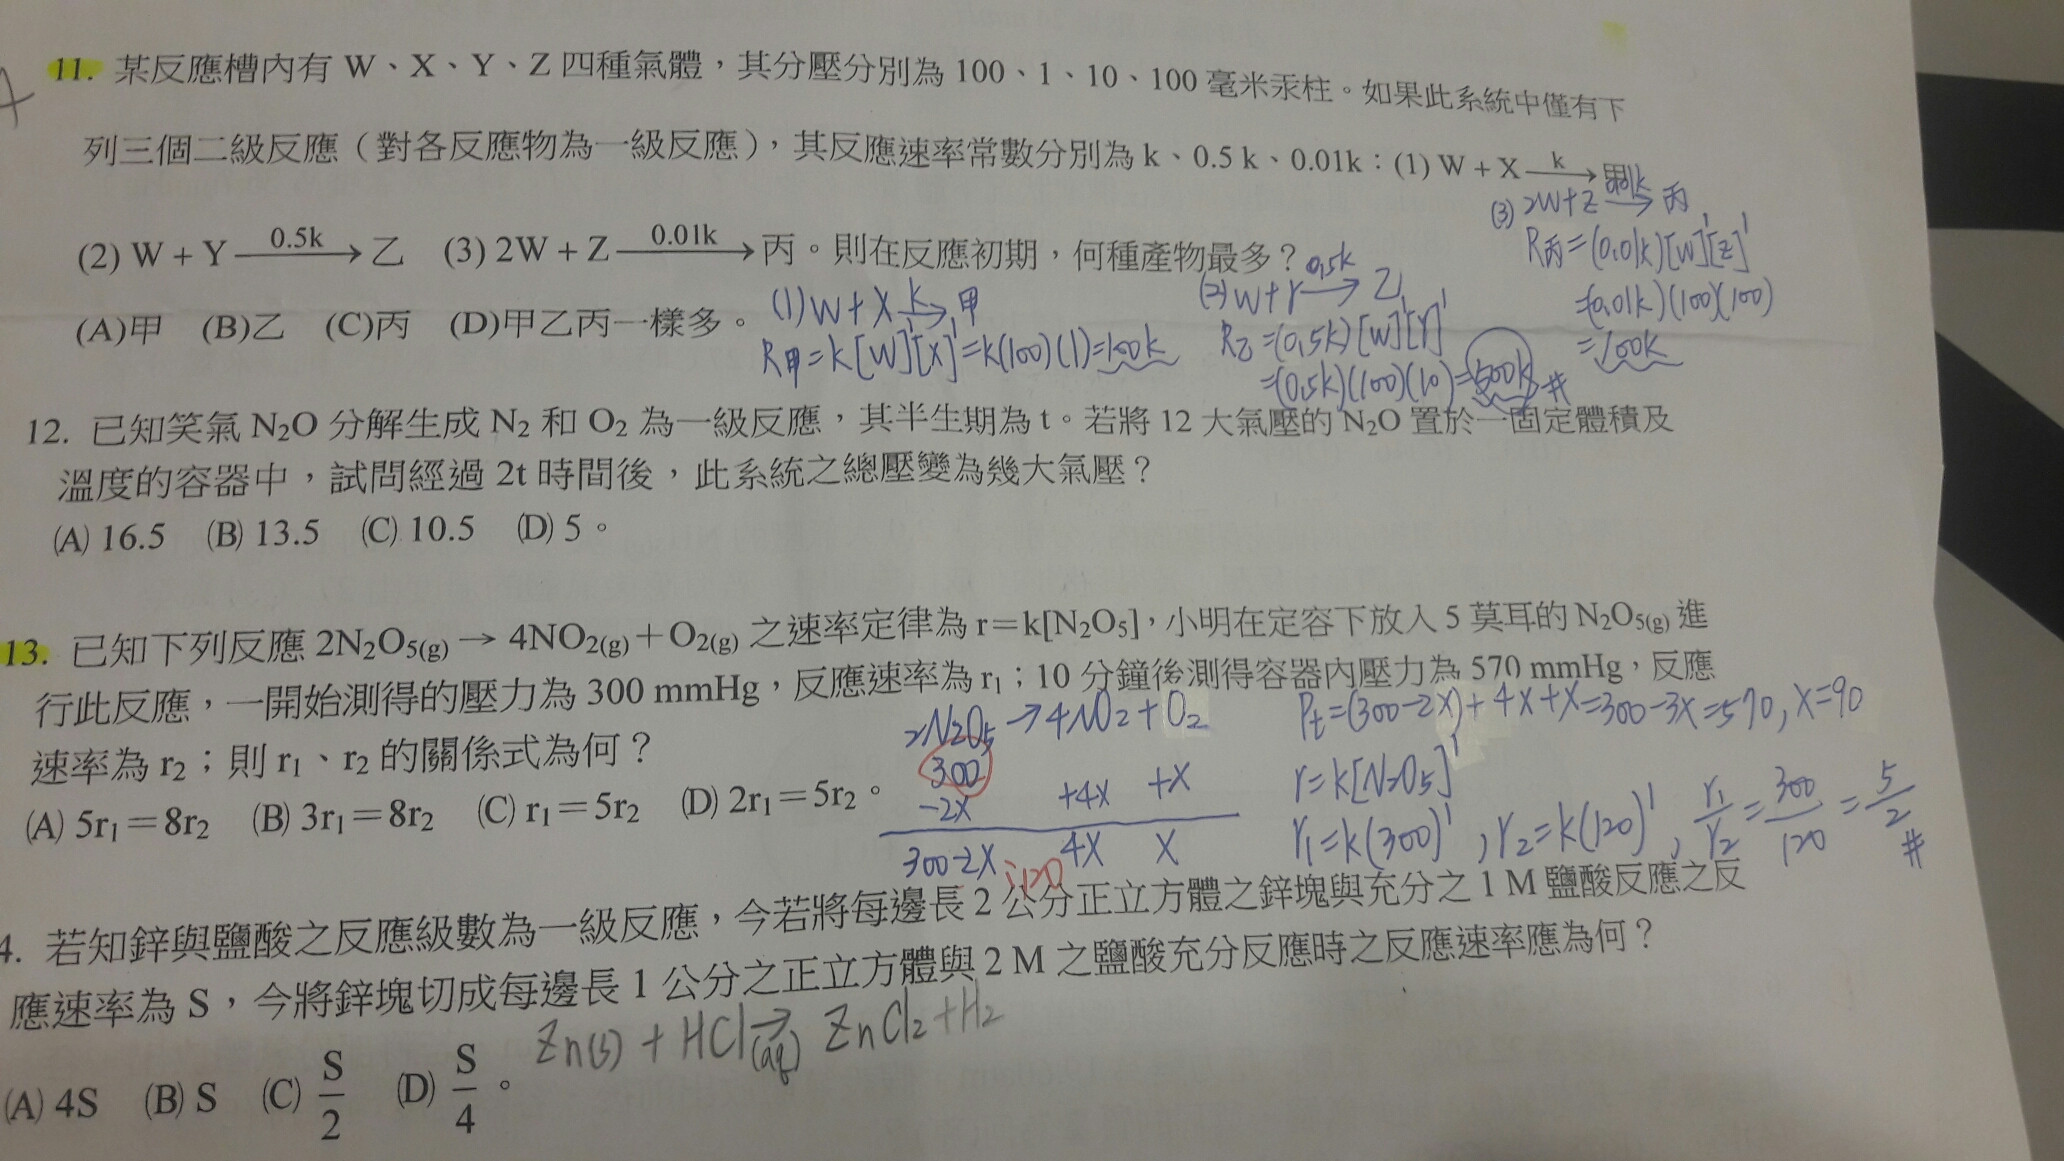 11. 某反應槽內有 W、X、Y、Z 四種氣體，其分壓分別為 100、1、10、100 毫米汞柱。如果此系統中僅有下
列三個二級反應（對各反應物為一級反應），其反應速率常數分別為 k、0.5 k、0.01k：(1) W + X —k→ 甲
(2) W + Y —0.5k→ 乙 (3) 2W + Z —0.01k→ 丙。則在反應初期，何種產物最多？
(A)甲 (B)乙 (C)丙 (D)甲乙丙一樣多。
(1) W + X —k→ 甲
R甲 = k[W]¹[X]¹ = k(100)(1) = 100k
(2) W + Y —0.5k→ 乙
R乙 = (0.5k)[W]¹[Y]¹
= (0.5k)(100)(10) = 500k #
(3) 2W + Z —0.01k→ 丙
R丙 = (0.01k)[W]¹[Z]¹
= (0.01k)(100)(100)
= 100k
12. 已知笑氣 N₂O 分解生成 N₂ 和 O₂ 為一級反應，其半生期為 t。若將 12 大氣壓的 N₂O 置於一固定體積及
溫度的容器中，試問經過 2t 時間後，此系統之總壓變為幾大氣壓？
(A) 16.5 (B) 13.5 (C) 10.5 (D) 5。
13. 已知下列反應 2N₂O₅(g) → 4NO₂(g)＋O₂(g) 之速率定律為 r＝k[N₂O₅]，小明在定容下放入 5 莫耳的 N₂O₅(g) 進
行此反應，一開始測得的壓力為 300 mmHg，反應速率為 r₁；10 分鐘後測得容器內壓力為 570 mmHg，反應
速率為 r₂；則 r₁、r₂ 的關係式為何？
(A) 5r₁＝8r₂ (B) 3r₁＝8r₂ (C) r₁＝5r₂ (D) 2r₁＝5r₂。
2N₂O₅ → 4NO₂ + O₂
300
-2X +4X +X
300-2X 4X X
120
Pt = (300-2X) + 4X + X = 300-3X = 570, X = 90
r = k[N₂O₅]¹
r₁ = k(300)¹, r₂ = k(120)¹, r₁/r₂ = 300/120 = 5/2 #
4. 若知鋅與鹽酸之反應級數為一級反應，今若將每邊長 2 公分正立方體之鋅塊與充分之 1 M 鹽酸反應之反
應速率為 S，今將鋅塊切成每邊長 1 公分之正立方體與 2 M 之鹽酸充分反應時之反應速率應為何？
Zn(s) + HCl(aq) → ZnCl₂ + H₂
(A) 4S (B) S (C) S/2 (D) S/4。